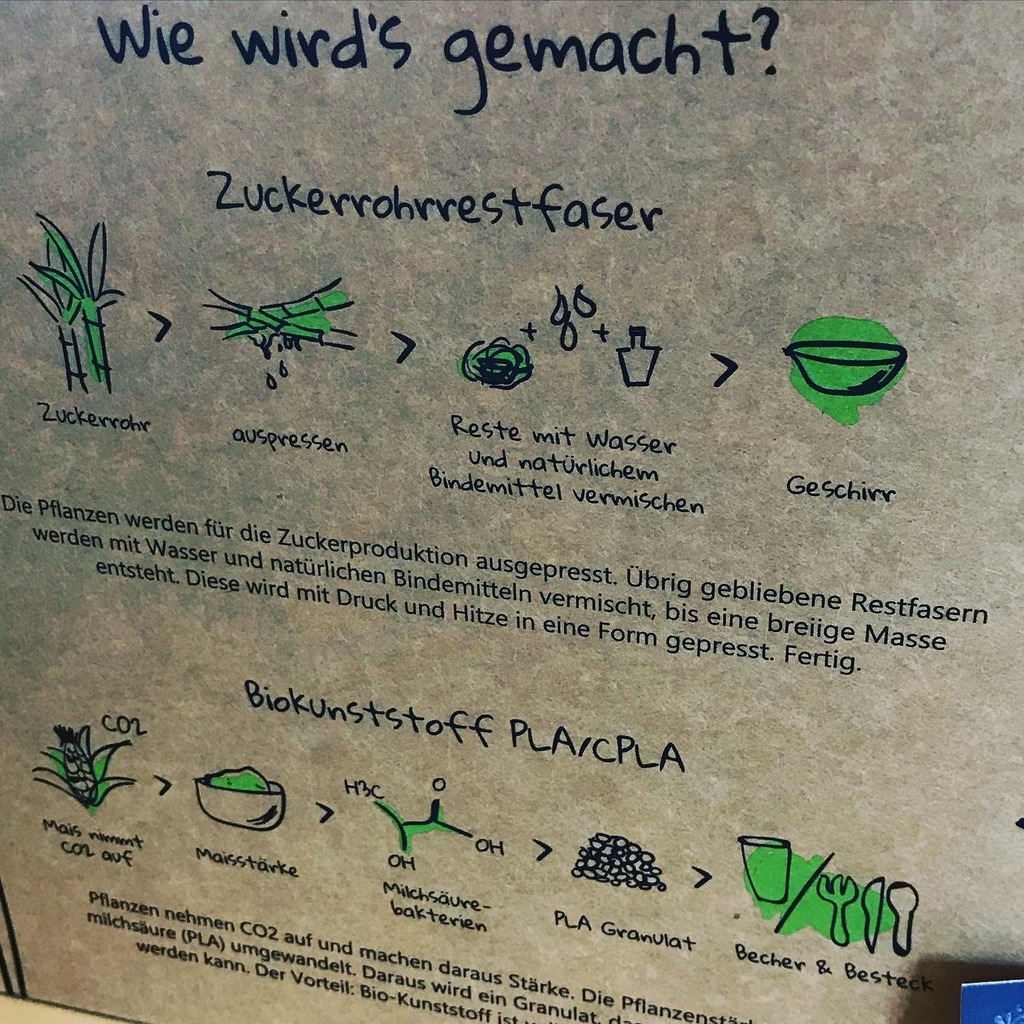 Wie wird's gemacht?
Zuckerrohrrestfaser
Zuckerrohr
auspressen
Reste mit Wasser
und natürlichem
Bindemittel vermischen
Geschirr
Die Pflanzen werden für die Zuckerproduktion ausgepresst. Übrig gebliebene Restfasern
werden mit Wasser und natürlichen Bindemitteln vermischt, bis eine breiige Masse
entsteht. Diese wird mit Druck und Hitze in eine Form gepresst. Fertig.
Biokunststoff PLA/CPLA
CO2
Mais nimmt
CO2 auf
Maisstärke
H3C
O
OH
OH
Milchsäure-
bakterien
PLA Granulat
Becher & Besteck
Pflanzen nehmen CO2 auf und machen daraus Stärke. Die
milchsäure (PLA) umgewandelt. Daraus wird ein Granulat,
werden kann. Der Vorteil: Bio-Kunststoff ist